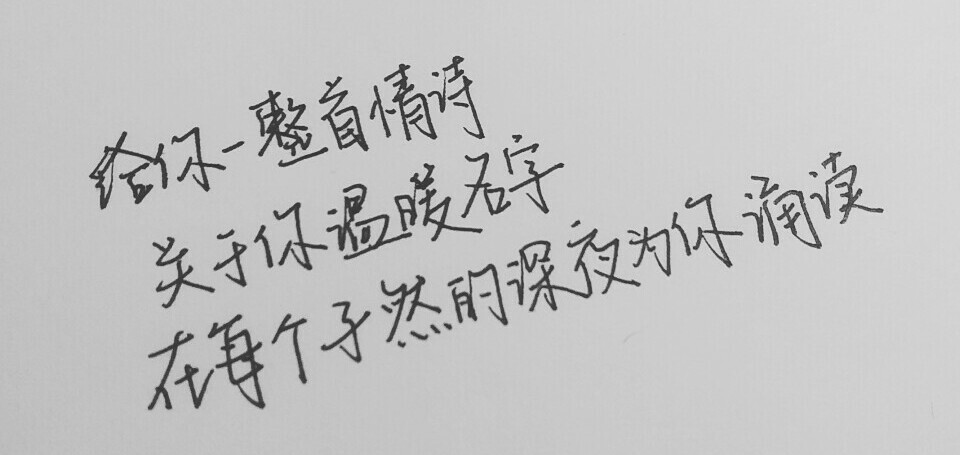 给你一整首情诗
关于你温暖名字
在每个孑然的深夜为你诵读